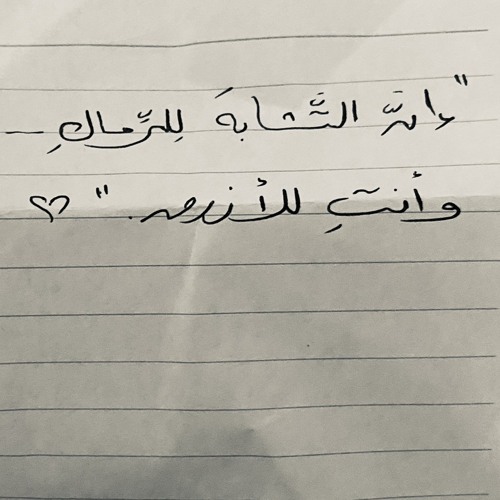 "وإنَّ التَّشابهَ لِلرِّمالِ _
وأنتِ للأزرق." ♡